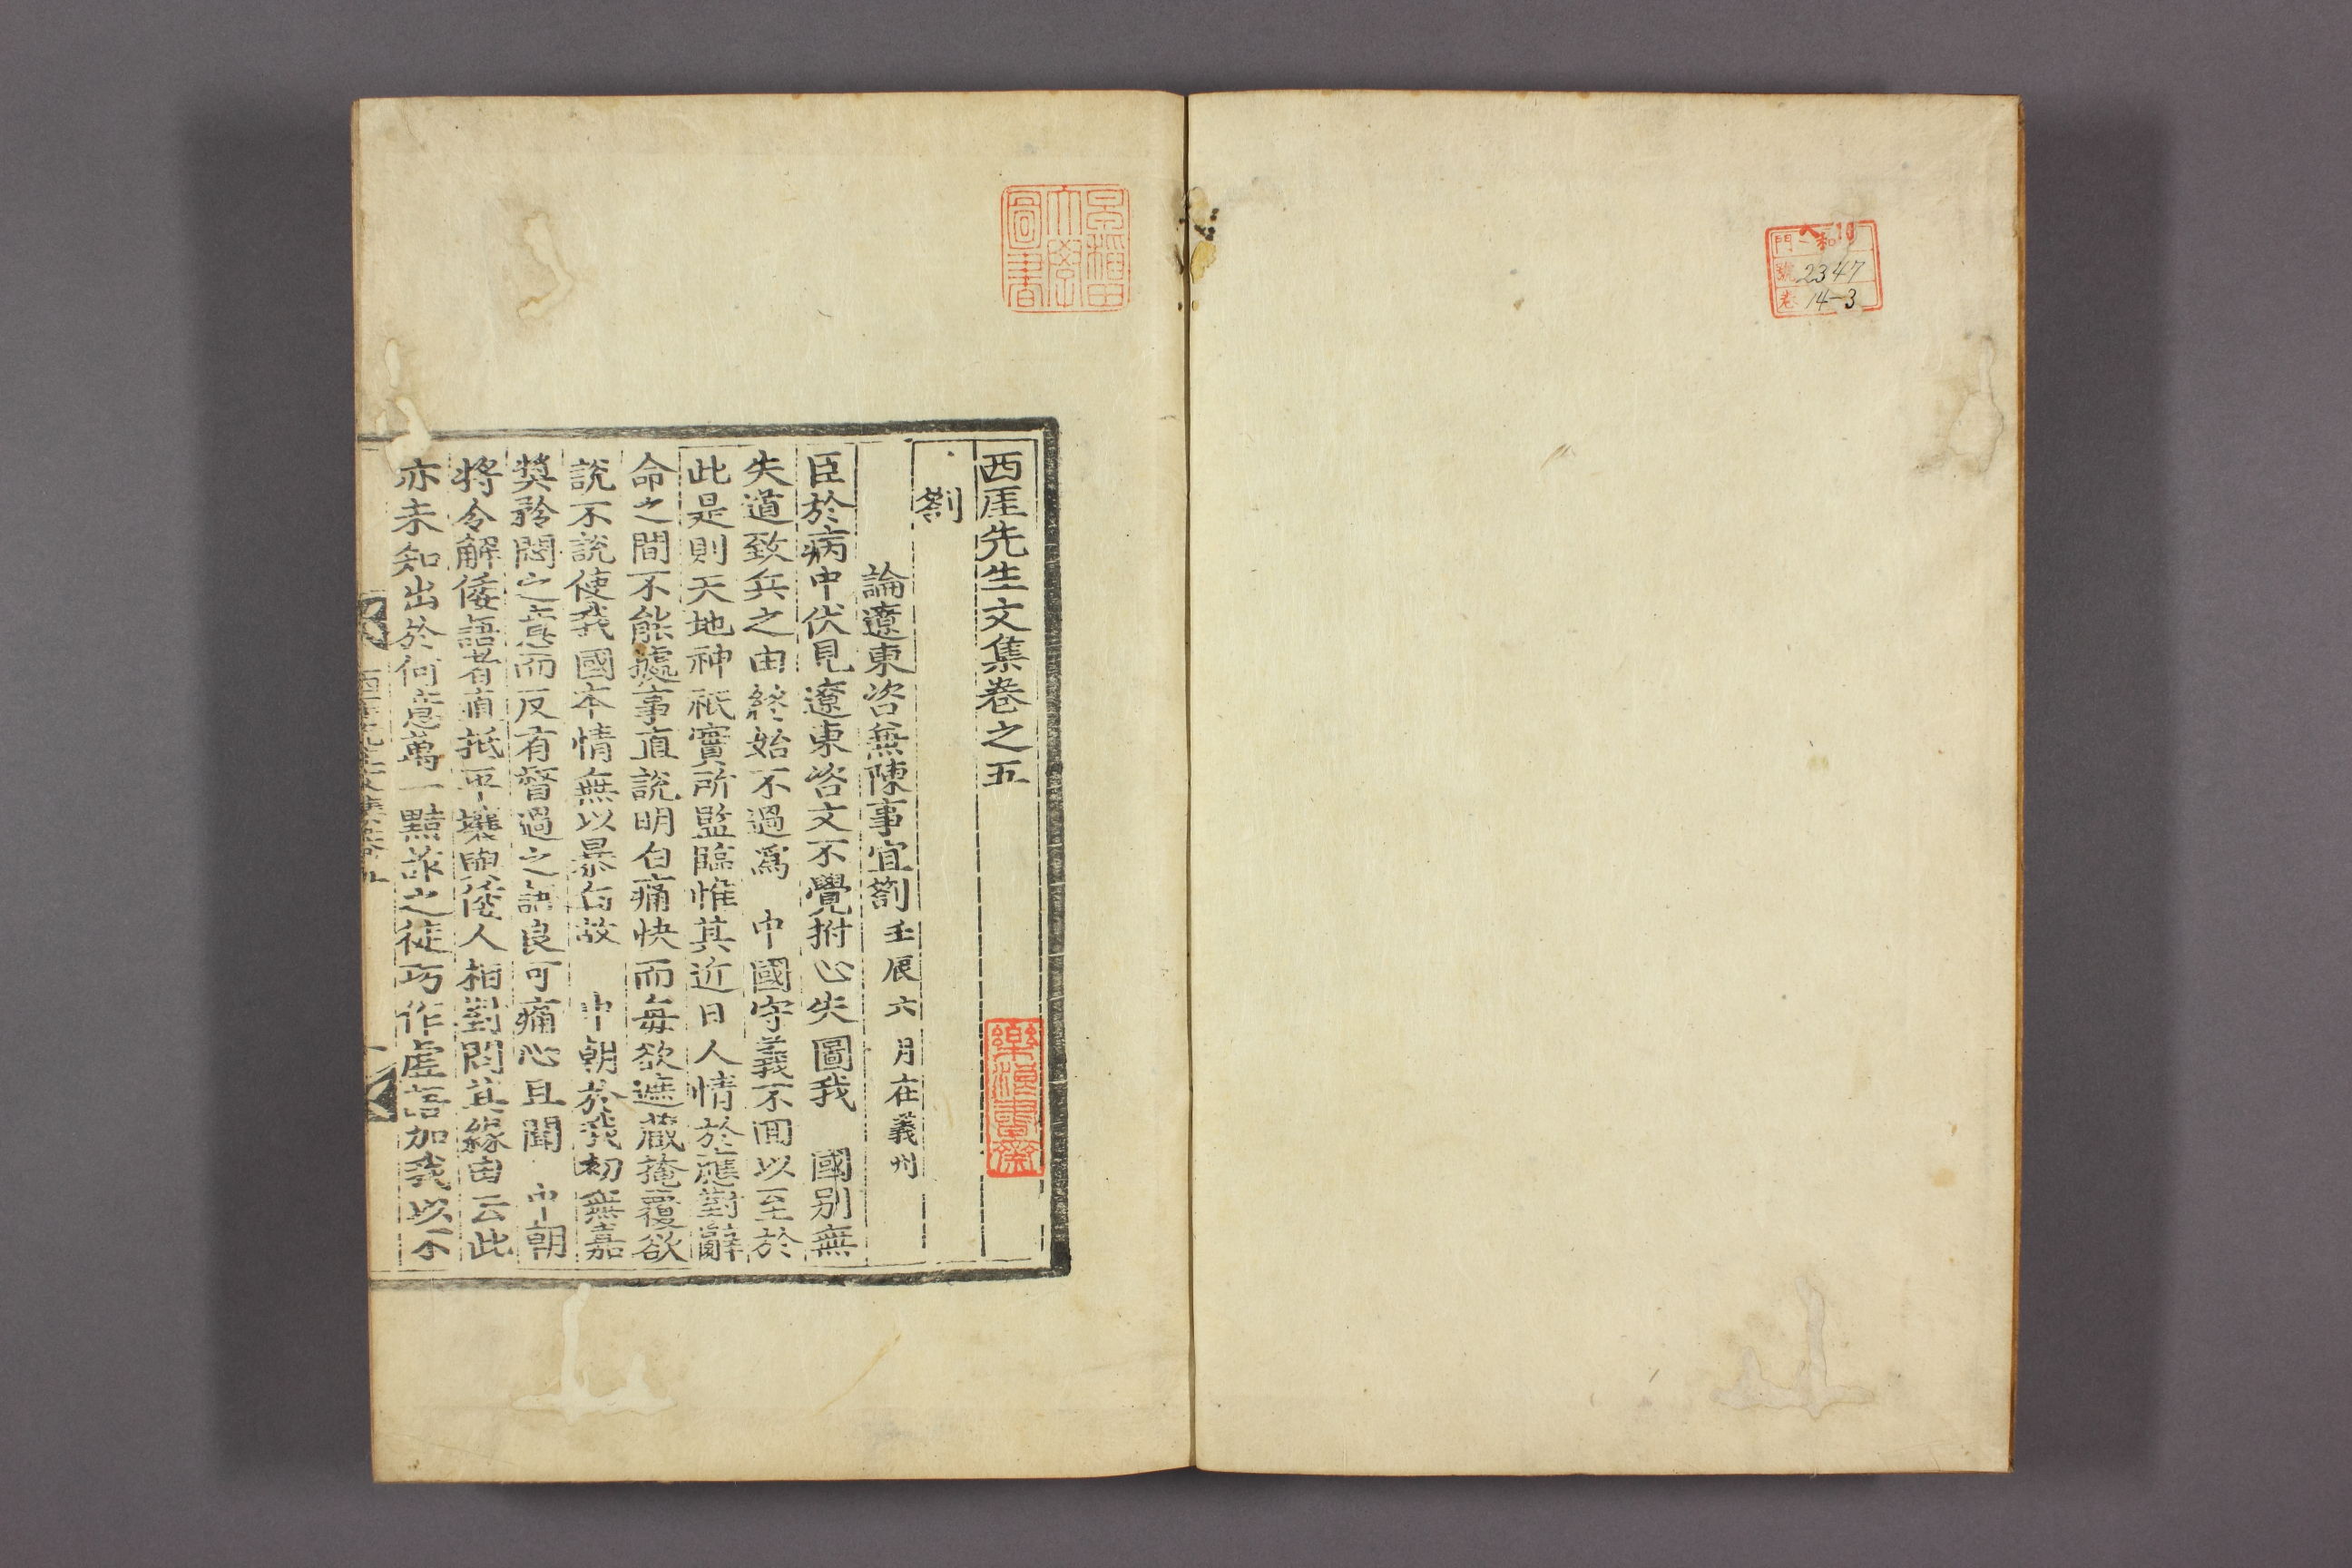 門
和
號 2347
卷 14-3
早稲田
大學
圖書
西厓先生文集卷之五
劄
論遼東咨兼陳事宜劄 壬辰六月在義州
臣於病中伏見遼東咨文不覺拊心失圖我 國別無
失道致兵之由終始不過爲 中國守義不回以至於
此是則天地神祇實所監臨惟其近日人情於應對辭
命之間不能處事直說明白痛快而每欲遮藏掩覆欲
說不說使我國本情無以暴白故 中朝於我初無嘉
奬矜悶之意而反有督過之語良可痛心且聞 中朝
將令解倭語者直抵平壤與倭人相對問其緣由云此
亦未知出於何意萬一黠詐之徒巧作虛語加我以不